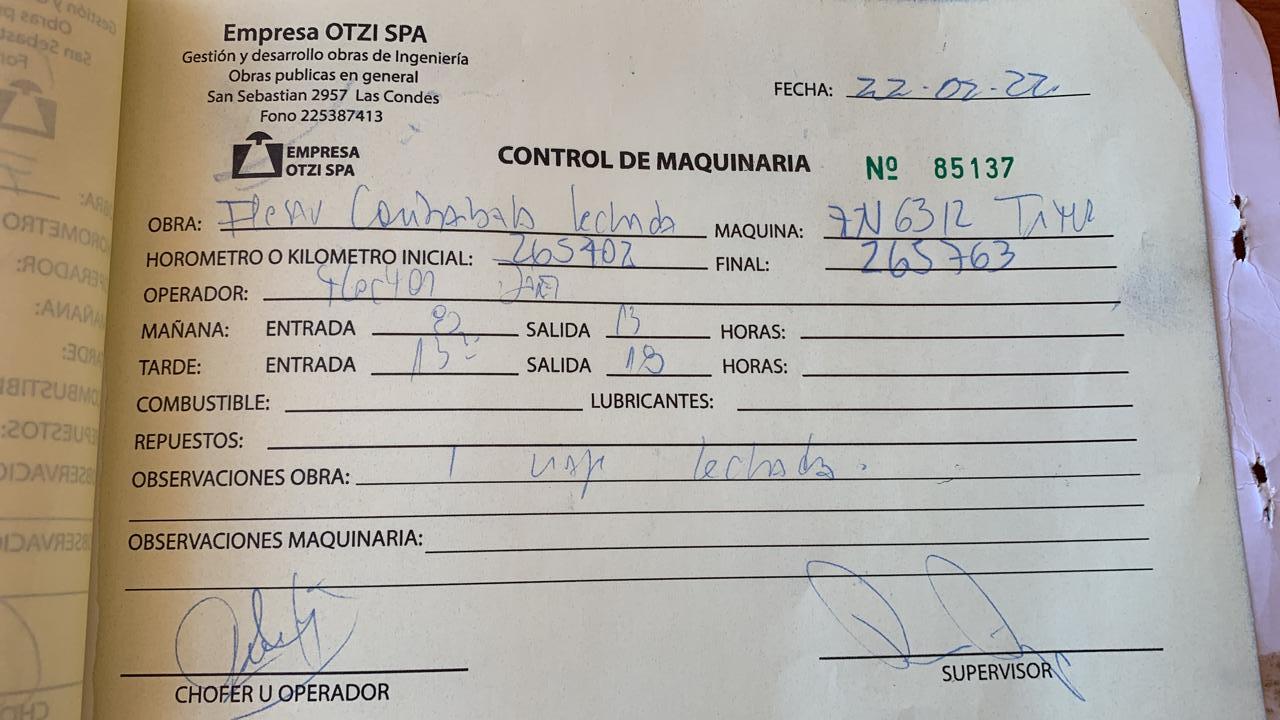 Empresa OTZI SPA
Gestión y desarrollo obras de Ingeniería
Obras publicas en general
San Sebastian 2957 Las Condes
Fono 225387413
FECHA: 22-02-22
EMPRESA
OTZI SPA
CONTROL DE MAQUINARIA Nº 85137
OBRA: lechada MAQUINA: 6312
HOROMETRO O KILOMETRO INICIAL: 265402 FINAL: 265763
OPERADOR:
MAÑANA: ENTRADA 8 SALIDA 13 HORAS:
TARDE: ENTRADA 13 SALIDA 18 HORAS:
COMBUSTIBLE: LUBRICANTES:
REPUESTOS:
OBSERVACIONES OBRA: 1 lechada.
OBSERVACIONES MAQUINARIA:
CHOFER U OPERADOR SUPERVISOR